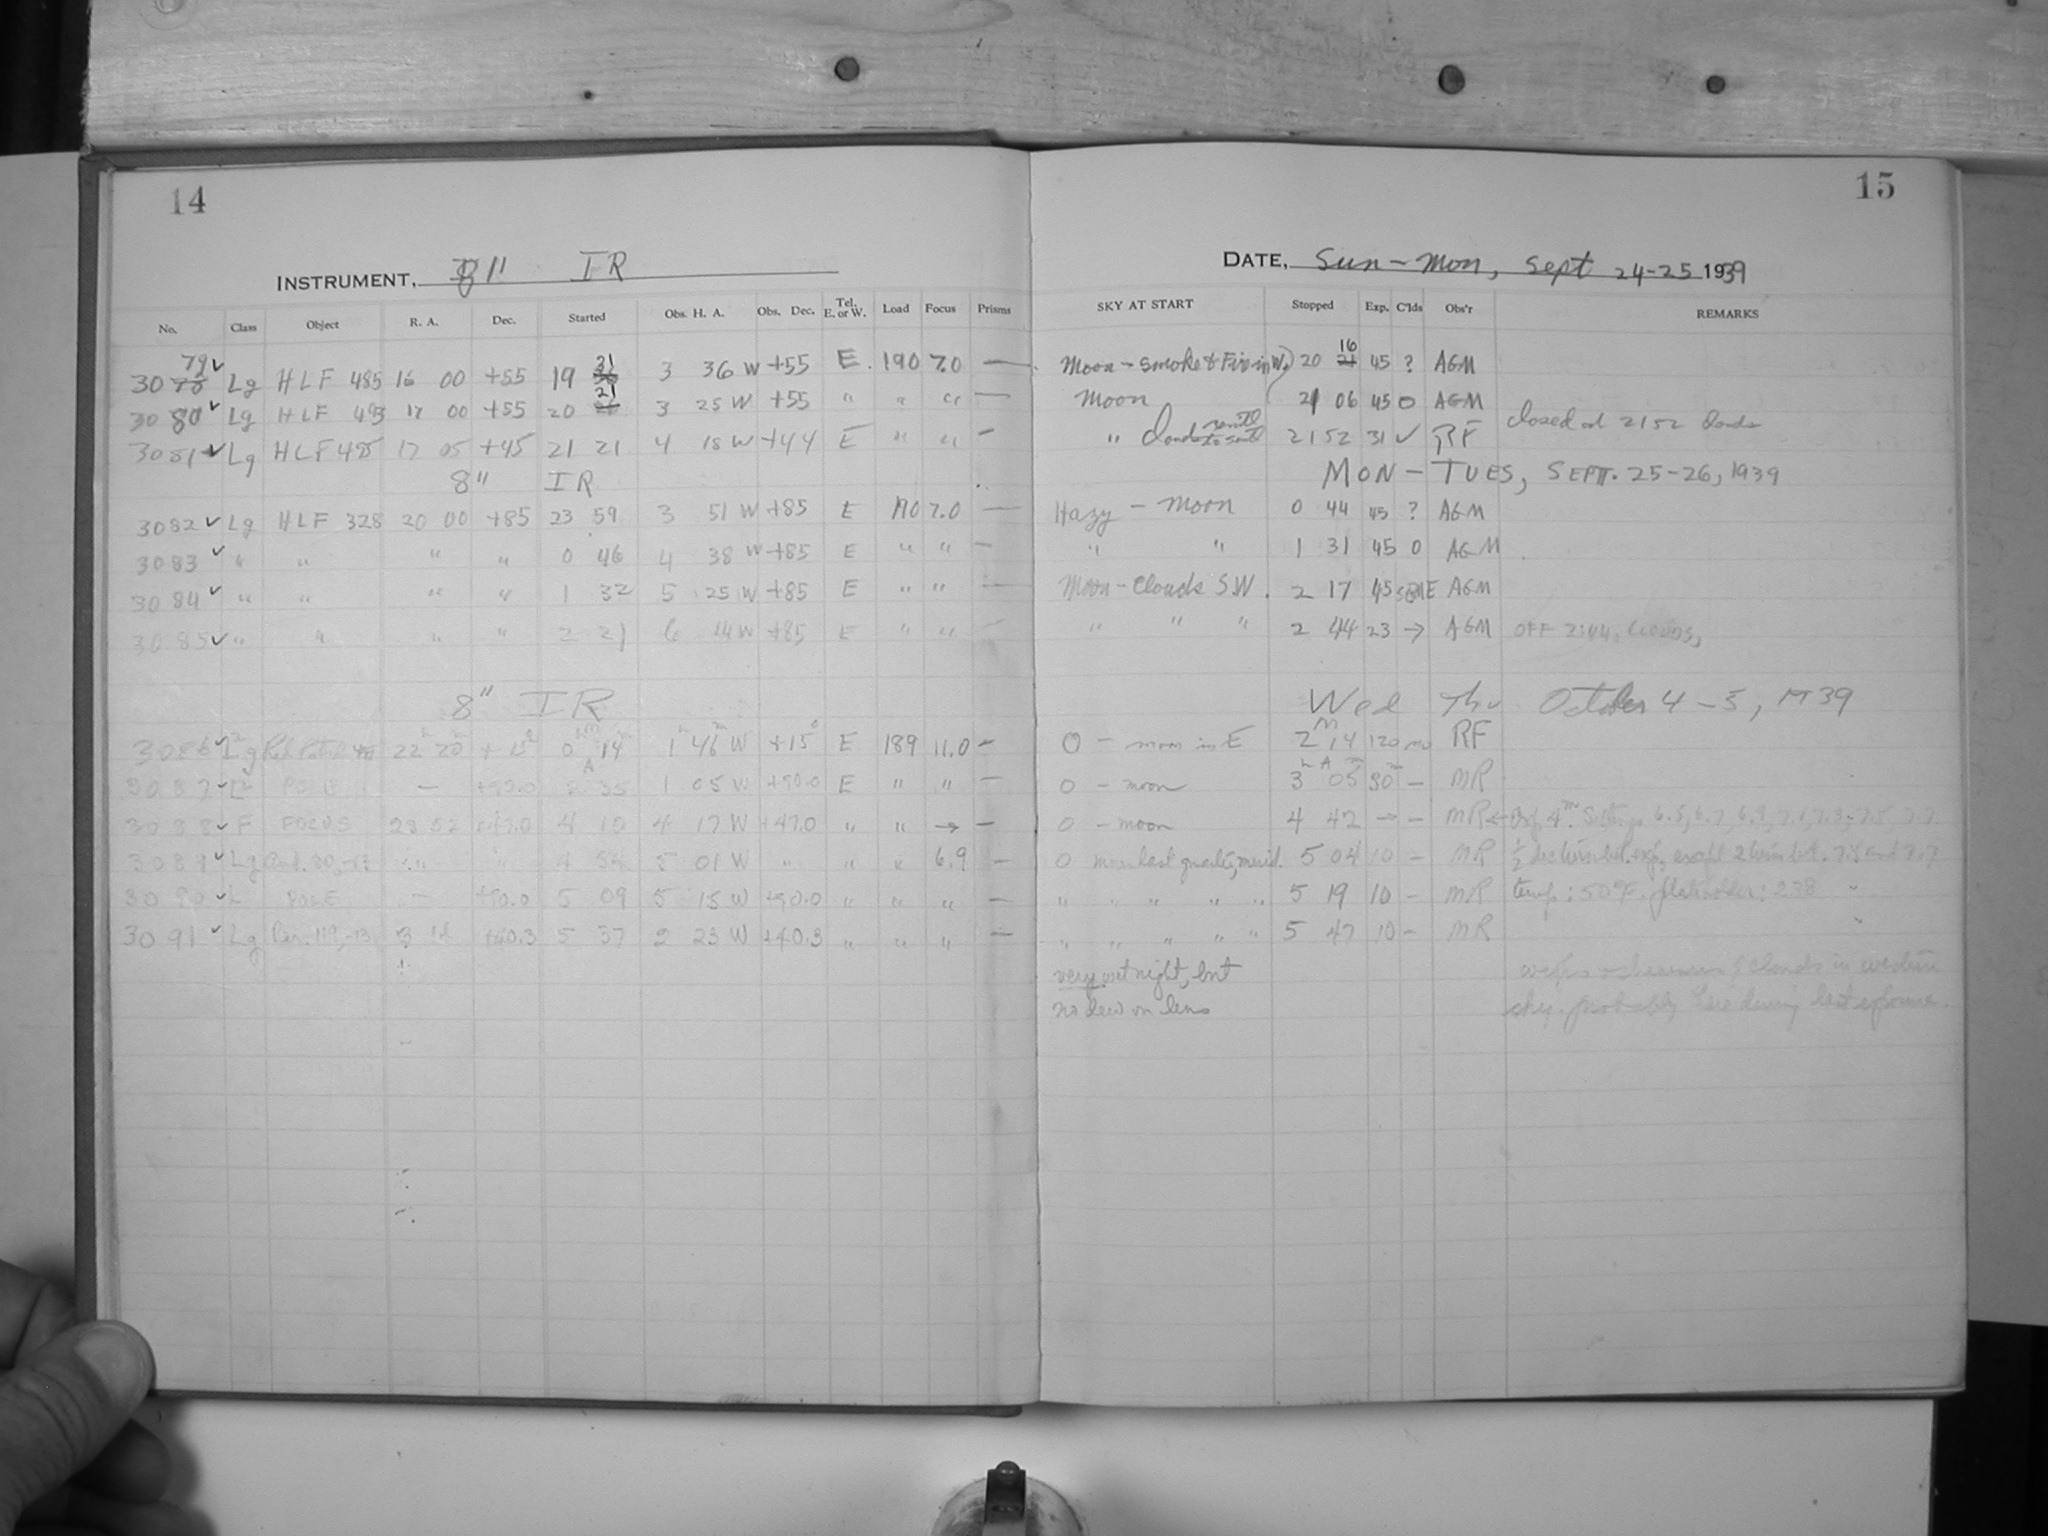 14
15
INSTRUMENT, 8" IR
DATE, Sun - Mon, Sept 24-25 1939
No. Class Object R. A. Dec. Started Obs. H. A. Obs. Dec. Tel. E. or W. Load Focus Prisms SKY AT START Stopped Exp. C'lds Obs'r REMARKS
79 31 16
3078 ✓ Lg HLF 485 16 00 +55 19 3 36 W +55 E 190 7.0 — Moon - Smoke & Fire in W. 20 21 45 ? AGM
21
3080 ✓ Lg HLF 493 17 00 +55 20 3 25 W +55 " " " — Moon 21 06 45 0 AGM
3081 ✓ Lg HLF 495 17 05 +45 21 21 4 18 W +44 E " " — " Clouds 21 52 31 ✓ RF closed at 2152 clouds
8" IR MON - TUES, SEPT. 25-26, 1939
3082 ✓ Lg HLF 328 20 00 +85 23 59 3 51 W +85 E 190 7.0 — Hazy - Moon 0 44 45 ? AGM
3083 ✓ " " " " 0 46 4 38 W +85 E " " — " " 1 31 45 0 AGM
3084 ✓ " " " " 1 32 5 25 W +85 E " " — Moon - Clouds S.W. 2 17 45 SOME AGM
3085 ✓ " " " " 2 21 6 14 W +85 E " " — " " " 2 44 23 → AGM OFF 2:44, CLOUDS,
8" IR Wed Thu October 4 - 5, 1939
3086 ✓ Lg 22h 20m +15° 0h 14m 1h 46m W +15° E 189 11.0 — 0 - moon in E 2 14 120 no RF
3087 ✓ L POLE — +90.0 2 35 1 05 W +90.0 E " " — 0 - moon 3h 05m 30m — MR
3088 ✓ F FOCUS 23 52 +47.0 4 10 4 17 W +47.0 " " → — 0 - moon 4 42 → — MR ← Exp. 4m. Settings 6.5, 6.7, 6.9, 7.1, 7.3, 7.5, 7.7
3089 ✓ Lg And. 80, -13 " " 4 54 5 01 W " " " 6.9 — 0 moon last quarter, merid. 5 04 10 — MR ½ dec turn bet. exp. except 2 turns bet. 7.5 and 7.7
3090 ✓ L POLE — +90.0 5 09 5 15 W +90.0 " " " — " " " " " 5 19 10 — MR temp: 50°F. plateholder: 278
3091 ✓ Lg Per. 119, -13 3 12 +40.3 5 37 2 23 W +40.3 " " " — " " " " " 5 47 10 — MR
very wet night, but clouds in western
no dew on lens sky. probably here during last exposure.